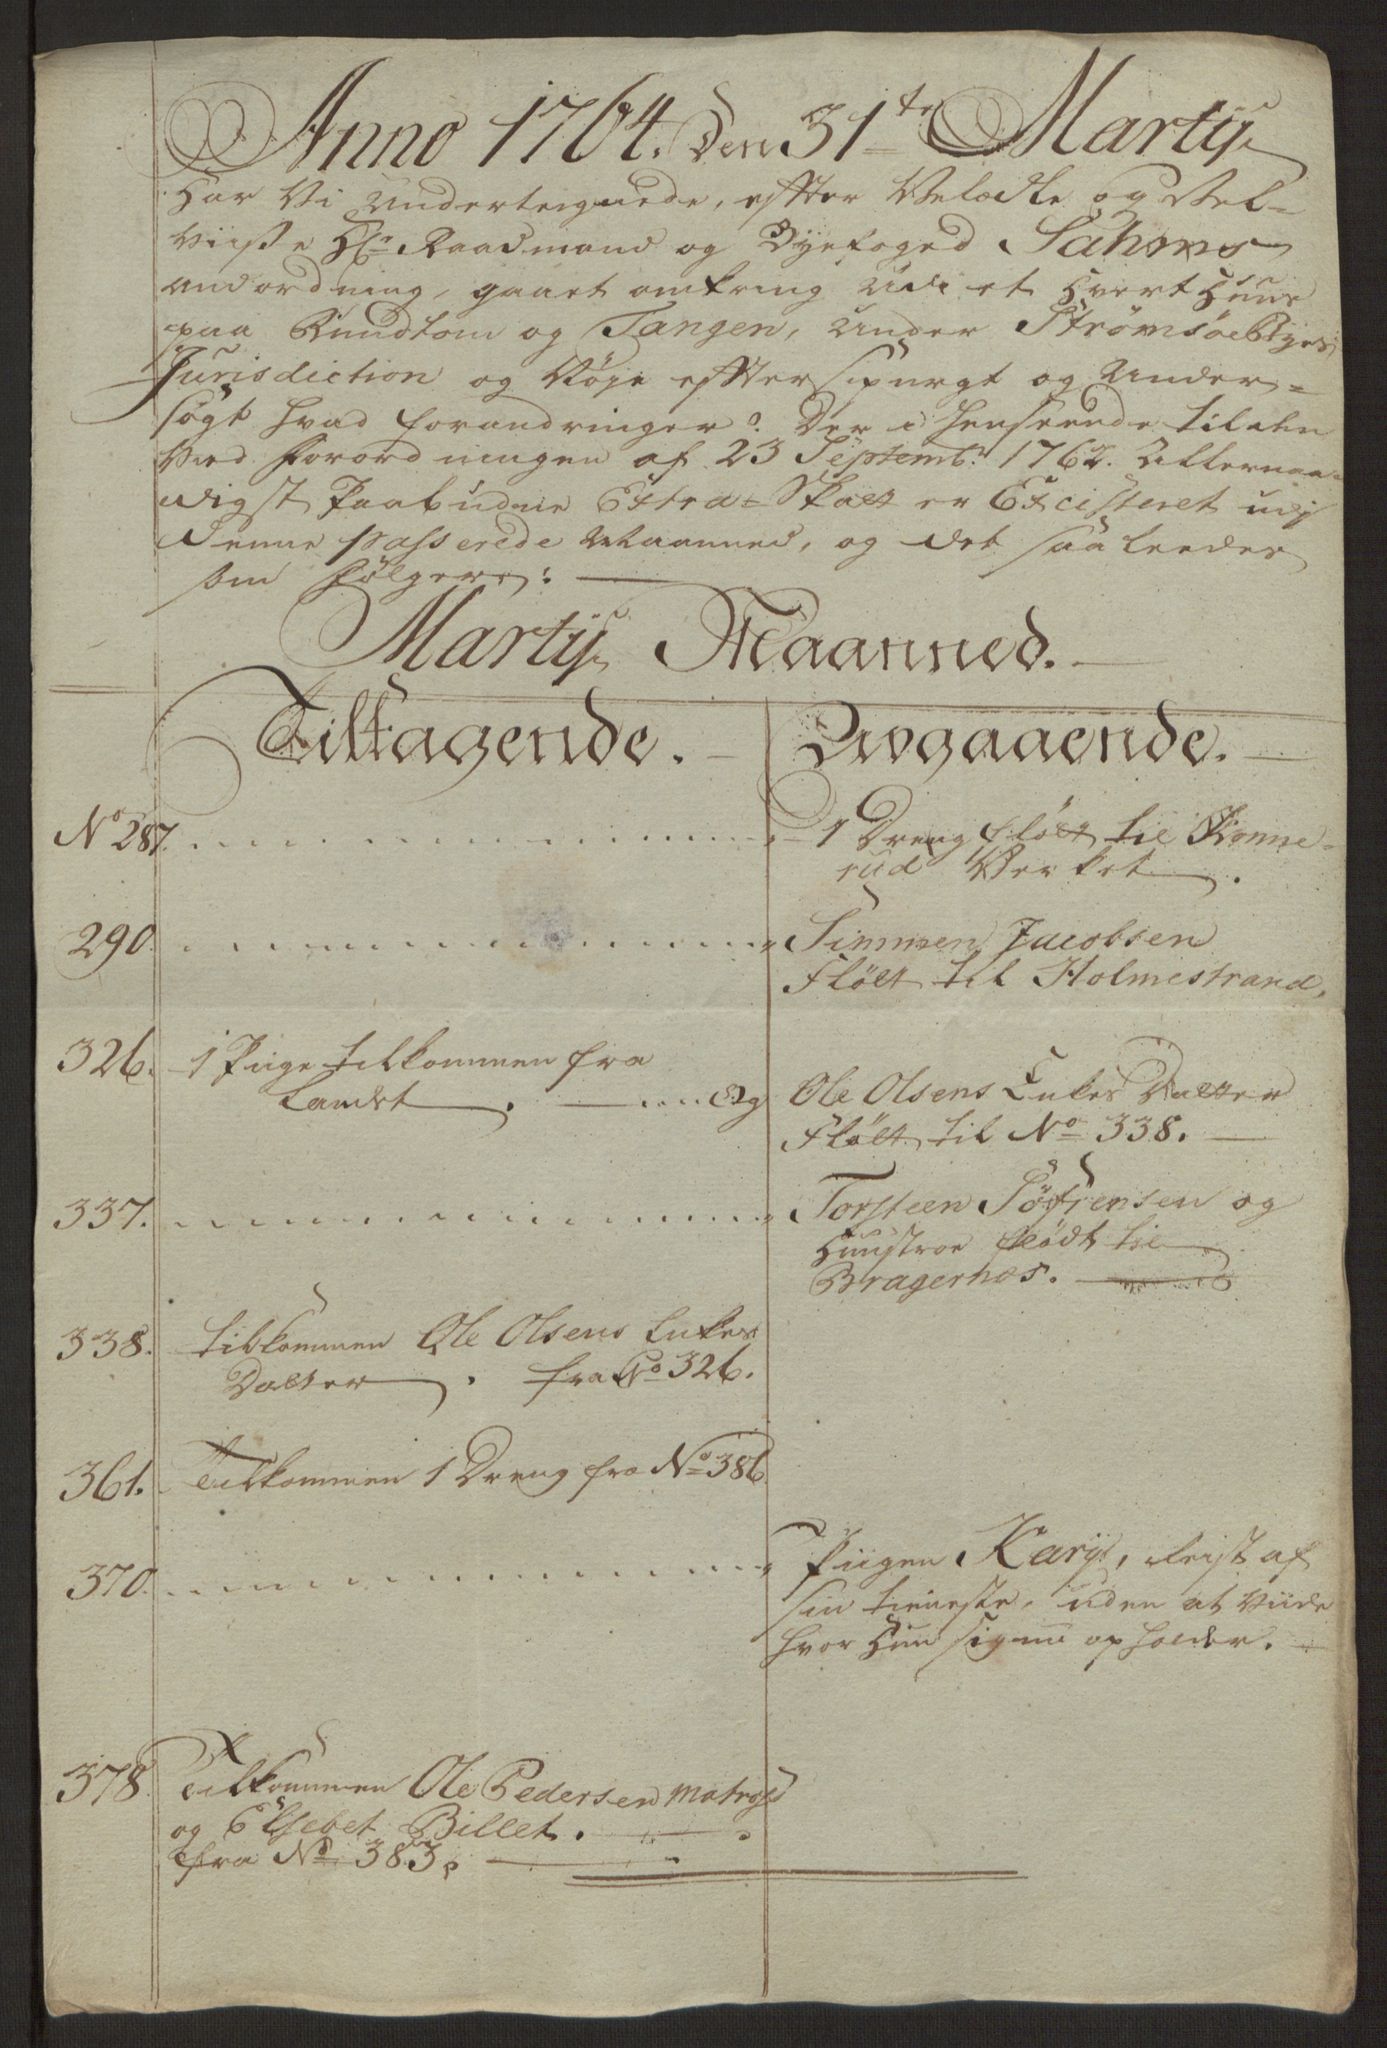 Anno 1764. Den 31te Martij
Har Vi Underteignede, efter Velædle og Vel-
viise Hr. Raadmand og Byefoged Sahms
Anordning, gaaet omkring Udi et hvert Huus
paa Rundtom og Tangen, Under Strømsøe Byes
Jurisdiction og Nøje efftersspurgt og Under-
søgt hvad forandringer Der i henseende til den
Ved Forordningen af 23 Septemb: 1762. Allernaa-
digst Paabudne Extra-Skatt er Excisteret udj
denne Passerede Maaned, og det saaleedes
som Følger:
Martij Maanned.
Tilltagende. Avgaaende.
No 287. 1 Dreng fløtt til Konne-
rud Verket.
290. Simmen Jacobsen
Fløtt til Holmestrand.
326. 1 Piige tilkommen fra
Landet. Og Ole Olsens Enkes Datter
Fløtt til No 338.
337. Torsteen Sørensen og
Huustroe flødt til
Bragernæs.
338. tilkommen Ole Olsens Enkes
Datter. fra No 326.
361. Tilkommen 1 Dreng fra No 386
370. Piigen Karj, reist af
sin tieneste, uden at Viide
hvor Hun sig nu opholder.
378 Tilkommen Ole Pedersen Matros
og Elsebet Billet.
fra No 383.